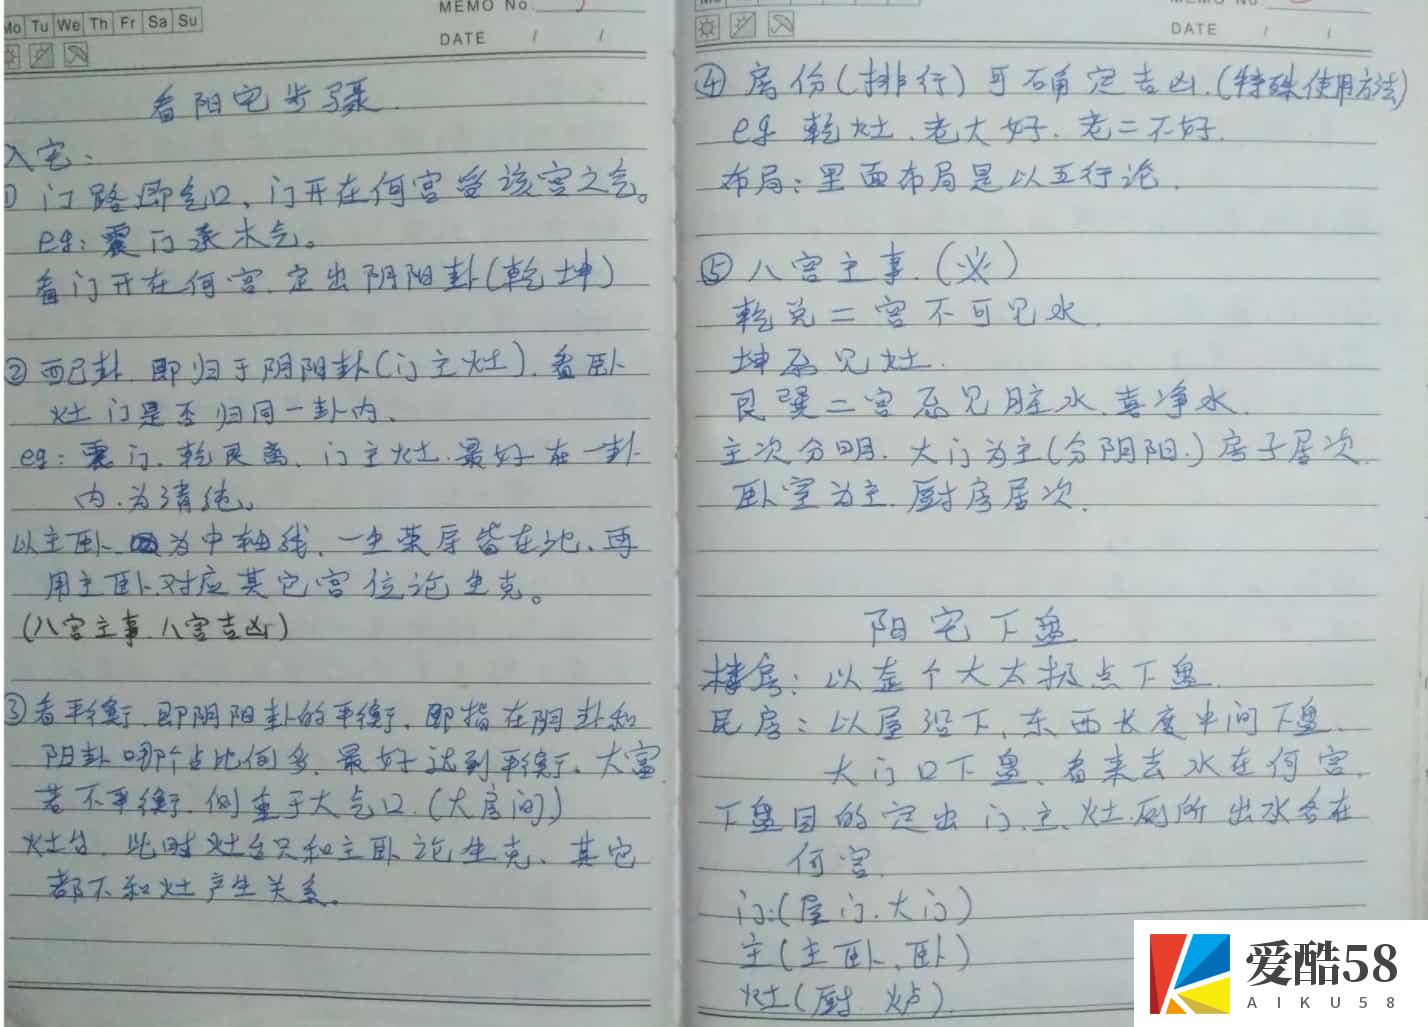 Mo Tu We Th Fr Sa Su
MEMO No.
DATE / /
看阳宅步骤.
入宅:
① 门路即气口、门开在何宫受该宫之气。
eg: 震门承木气。
看门开在何宫.定出阴阳卦(乾坤)
② 配卦.即归于阴阳卦(门主灶).看卧
灶门是否归同一卦内.
eg: 震门.乾艮离、门主灶.最好在一卦
内.为清纯。
以主卧 为中轴线、一生荣辱皆在此、再
用主卧对应其它宫位论生克。
(八宫主事.八宫吉凶)
③看平衡.即阴阳卦的平衡.即指在阴卦和
阳卦哪个占比例多.最好达到平衡、大富.
若不平衡.侧重于大气口.(大房间)
灶台.此时灶台只和主卧论生克、其它
都不和灶产生关系.
MEMO No.
DATE / /
④ 房份(排行)可确定吉凶.(特殊使用方法)
eg 乾灶.老大好.老二不好.
布局:里面布局是以五行论.
⑤ 八宫主事.(必)
乾兑二宫不可见水.
坤忌见灶.
艮巽二宫忌见脏水.喜净水.
主次分明.大门为主(分阴阳.)房子居次.
卧室为主.厨房居次.
阳宅下盘
楼房:以整个大太极点下盘.
民房:以屋沿下、东西长度中间下盘.
大门口下盘、看来去水在何宫.
下盘目的定出门.主.灶.厕所出水各在
何宫.
门:(屋门.大门)
主(主卧.卧)
灶(厨.炉).
爱酷58
AIKU58